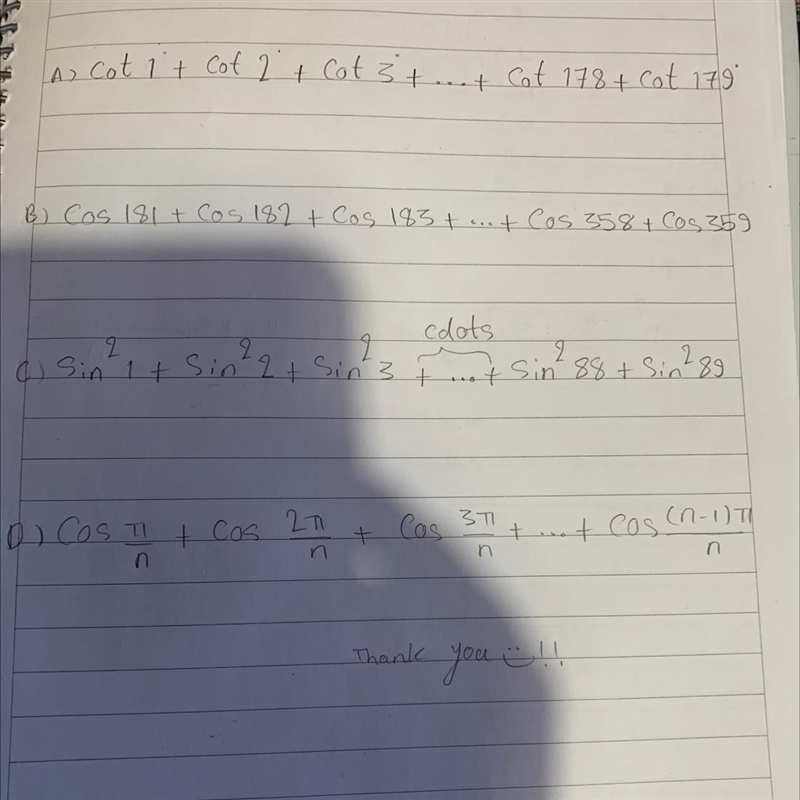 A) Cot 1° + Cot 2° + Cot 3° + ... + Cot 178 + Cot 179°
B) Cos 181 + Cos 182 + Cos 183 + ... + Cos 358 + Cos 359
cdots
C) Sin² 1 + Sin² 2 + Sin² 3 + ... + Sin² 88 + Sin² 89
D) Cos π/n + Cos 2π/n + Cos 3π/n + ... + Cos (n-1)π/n
Thank you !!